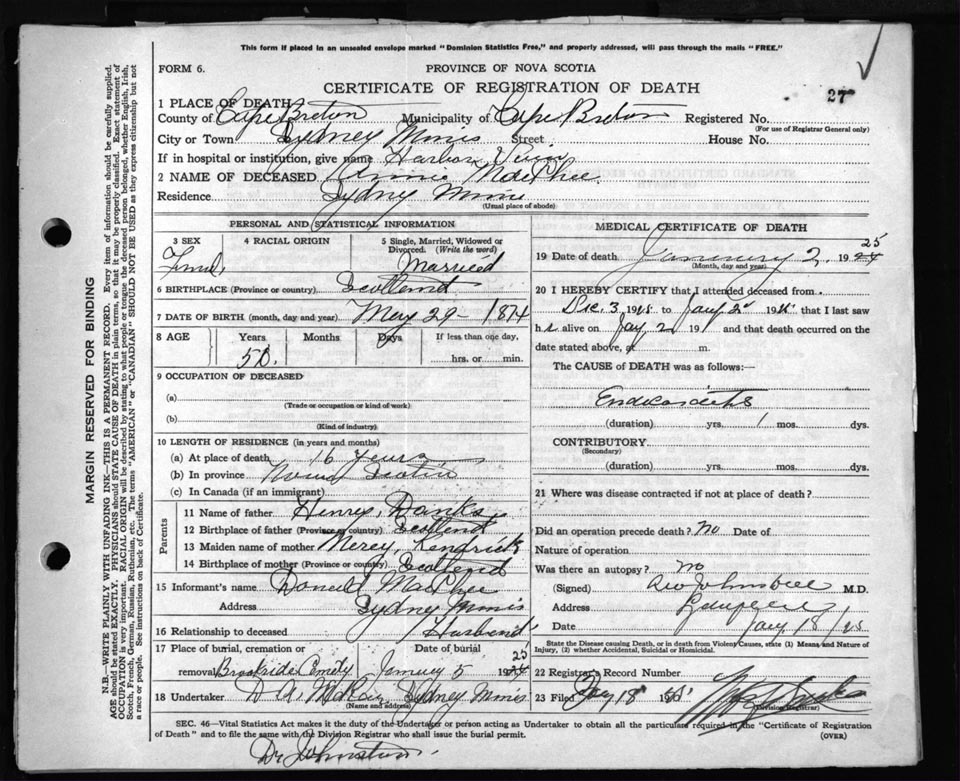 This form if placed in an unsealed envelope marked "Dominion Statistics Free," and properly addressed, will pass through the mails "FREE."
FORM 6.
PROVINCE OF NOVA SCOTIA
CERTIFICATE OF REGISTRATION OF DEATH
27
1 PLACE OF DEATH
County of Cape Breton Municipality of Cape Breton Registered No.
(For use of Registrar General only)
City or Town Sydney Mines Street House No.
If in hospital or institution, give name Harbor View
2 NAME OF DECEASED Annie MacPhee
Residence Sydney Mines
(Usual place of abode)
PERSONAL AND STATISTICAL INFORMATION
3 SEX 4 RACIAL ORIGIN 5 Single, Married, Widowed or Divorced. (Write the word)
Married
6 BIRTHPLACE (Province or country) Scotland
7 DATE OF BIRTH (month, day and year) May 29 - 1874
8 AGE Years Months Days If less than one day,
50. hrs. or min.
9 OCCUPATION OF DECEASED
(a)
(Trade or occupation or kind of work)
(b)
(Kind of industry)
10 LENGTH OF RESIDENCE (in years and months)
(a) At place of death 16 years
(b) In province Nova Scotia
(c) In Canada (if an immigrant)
Parents
11 Name of father Henry Danks
12 Birthplace of father (Province or country) Scotland
13 Maiden name of mother Mercy Kendrick
14 Birthplace of mother (Province or country) Scotland
15 Informant's name Donald MacPhee
Address Sydney Mines
16 Relationship to deceased Husband
17 Place of burial, cremation or removal Date of burial
Brookside January 5 1925
18 Undertaker D A McKay Sydney Mines
(Name and address)
MEDICAL CERTIFICATE OF DEATH
19 Date of death January 2, 1925
(Month, day and year)
20 I HEREBY CERTIFY that I attended deceased from
Dec 3 19 to Jany 2 19 that I last saw
h alive on Jany 2 19 and that death occurred on the
date stated above, at m.
The CAUSE OF DEATH was as follows:—
Endicarditis
(duration) yrs. 1 mos. dys.
CONTRIBUTORY
(Secondary)
(duration) yrs. mos. dys.
21 Where was disease contracted if not at place of death?
Did an operation precede death? No Date of
Nature of operation
Was there an autopsy? no
(Signed) M.D.
Address
Date Jany 18 25
State the Disease causing Death, or in death from Violent Causes, state (1) Means and Nature of Injury, (2) whether Accidental, Suicidal or Homicidal.
22 Registrar's Record Number
23 Filed Jany 18 1925
(Division Registrar)
SEC. 46—Vital Statistics Act makes it the duty of the Undertaker or person acting as Undertaker to obtain all the particulars required in the "Certificate of Registration
of Death" and to file the same with the Division Registrar who shall issue the burial permit. (OVER)
Dr Johnston
MARGIN RESERVED FOR BINDING
N.B.—WRITE PLAINLY WITH UNFADING INK—THIS IS A PERMANENT RECORD. Every item of information should be carefully supplied.
AGE should be stated EXACTLY. PHYSICIANS should STATE CAUSE OF DEATH in plain terms, so that it may be properly classified. Exact statement of
OCCUPATION is very important. RACIAL ORIGIN will be described by stating to what people or tongue the deceased person belonged, whether English, Irish,
Scotch, French, German, Russian, Ruthenian, etc. The terms "AMERICAN" or "CANADIAN" SHOULD NOT BE USED as they express citizenship but not
a race or people. See instructions on back of Certificate.